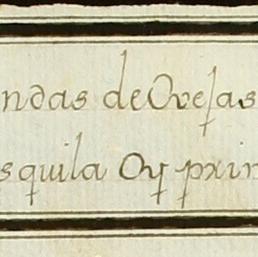 ndas de Ovejas
squila Oy prin